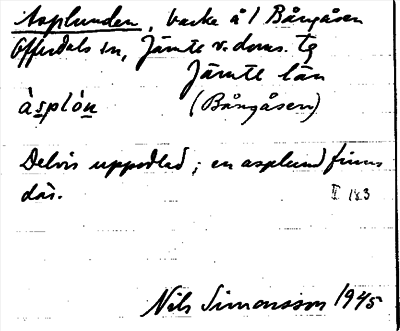 Asplunden, backe å 1 Bångåsen
Offerdals sn, Jämte v. doms. tg
Jämte län
àsplón (Bångåsen)
Delvis uppodlad; en asplund finns
där.
II 183
Nils Simonsson 1945